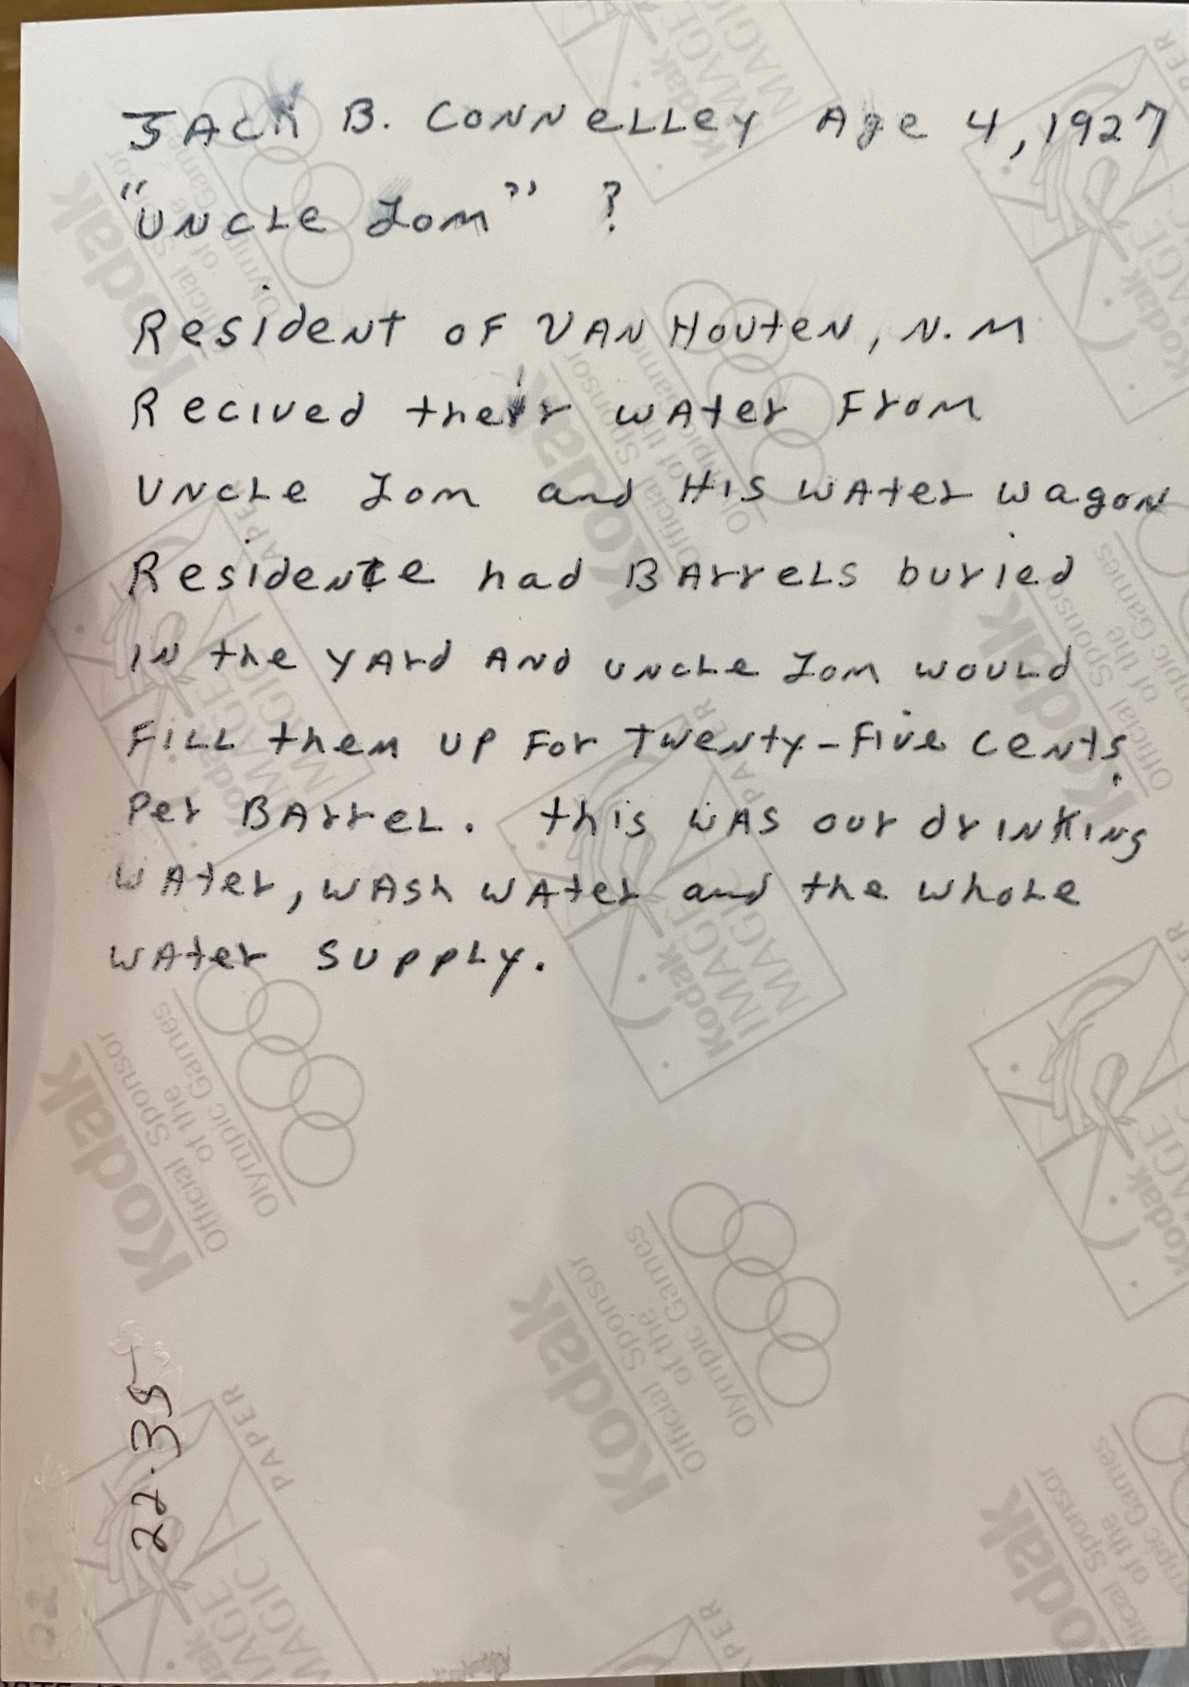 JACK B. CONNELLEY Age 4, 1927
"UNCLE Tom" ?
Resident OF VAN HOUTEN, N.M
Recived their WAter From
UNCLE Tom and HIS WAter wagon
Residence had BArreLS buried
IN the YArd AND UNCLE Tom WOULD
FILL them UP For Twenty-Five cents
Per BArreL. this WAS our drINKINg
WAter, WAsh WAter and the whoLe
WAter SUPPLY.
22.35
Kodak
Official Sponsor
of the
Olympic Games
Kodak
IMAGE
MAGIC
PAPER